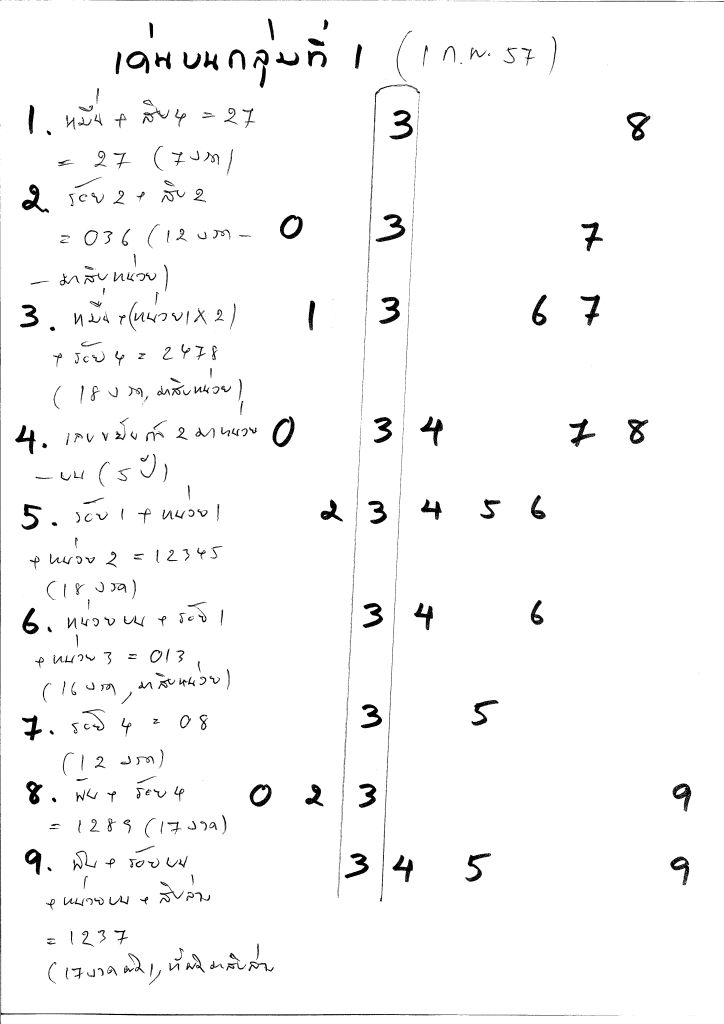 เด่นบนกลุ่มที่ 1 (1 ก.พ. 57)
1. หมื่น + สิบ 4 = 27 3 8
= 27 (7 งวด)
2. ร้อย 2 + สิบ 2
= 036 (12 งวด – 0 3 7
– มาสิบหน่วย)
3. หมื่น + (หน่วย 1 X 2) 1 3 6 7
+ ร้อย 4 = 2478
(18 งวด, มาสิบหน่วย)
4. 2 มาหน่วย 0 3 4 7 8
– บน (5 ปี)
5. ร้อย 1 + หน่วย 1 2 3 4 5 6
+ หน่วย 2 = 12345
(18 งวด)
6. หน่วยบน + ร้อย 1 3 4 6
+ หน่วย 3 = 013
(16 งวด, มาสิบหน่วย)
7. ร้อย 4 = 08 3 5
(12 งวด)
8. พัน + ร้อย 4 0 2 3 9
= 1289 (17 งวด)
9. พัน + ร้อยบน 3 4 5 9
+ หน่วยบน + สิบล่าง
= 1237
(17 งวดผิด 1, ที่ผิดมาสิบล่าง